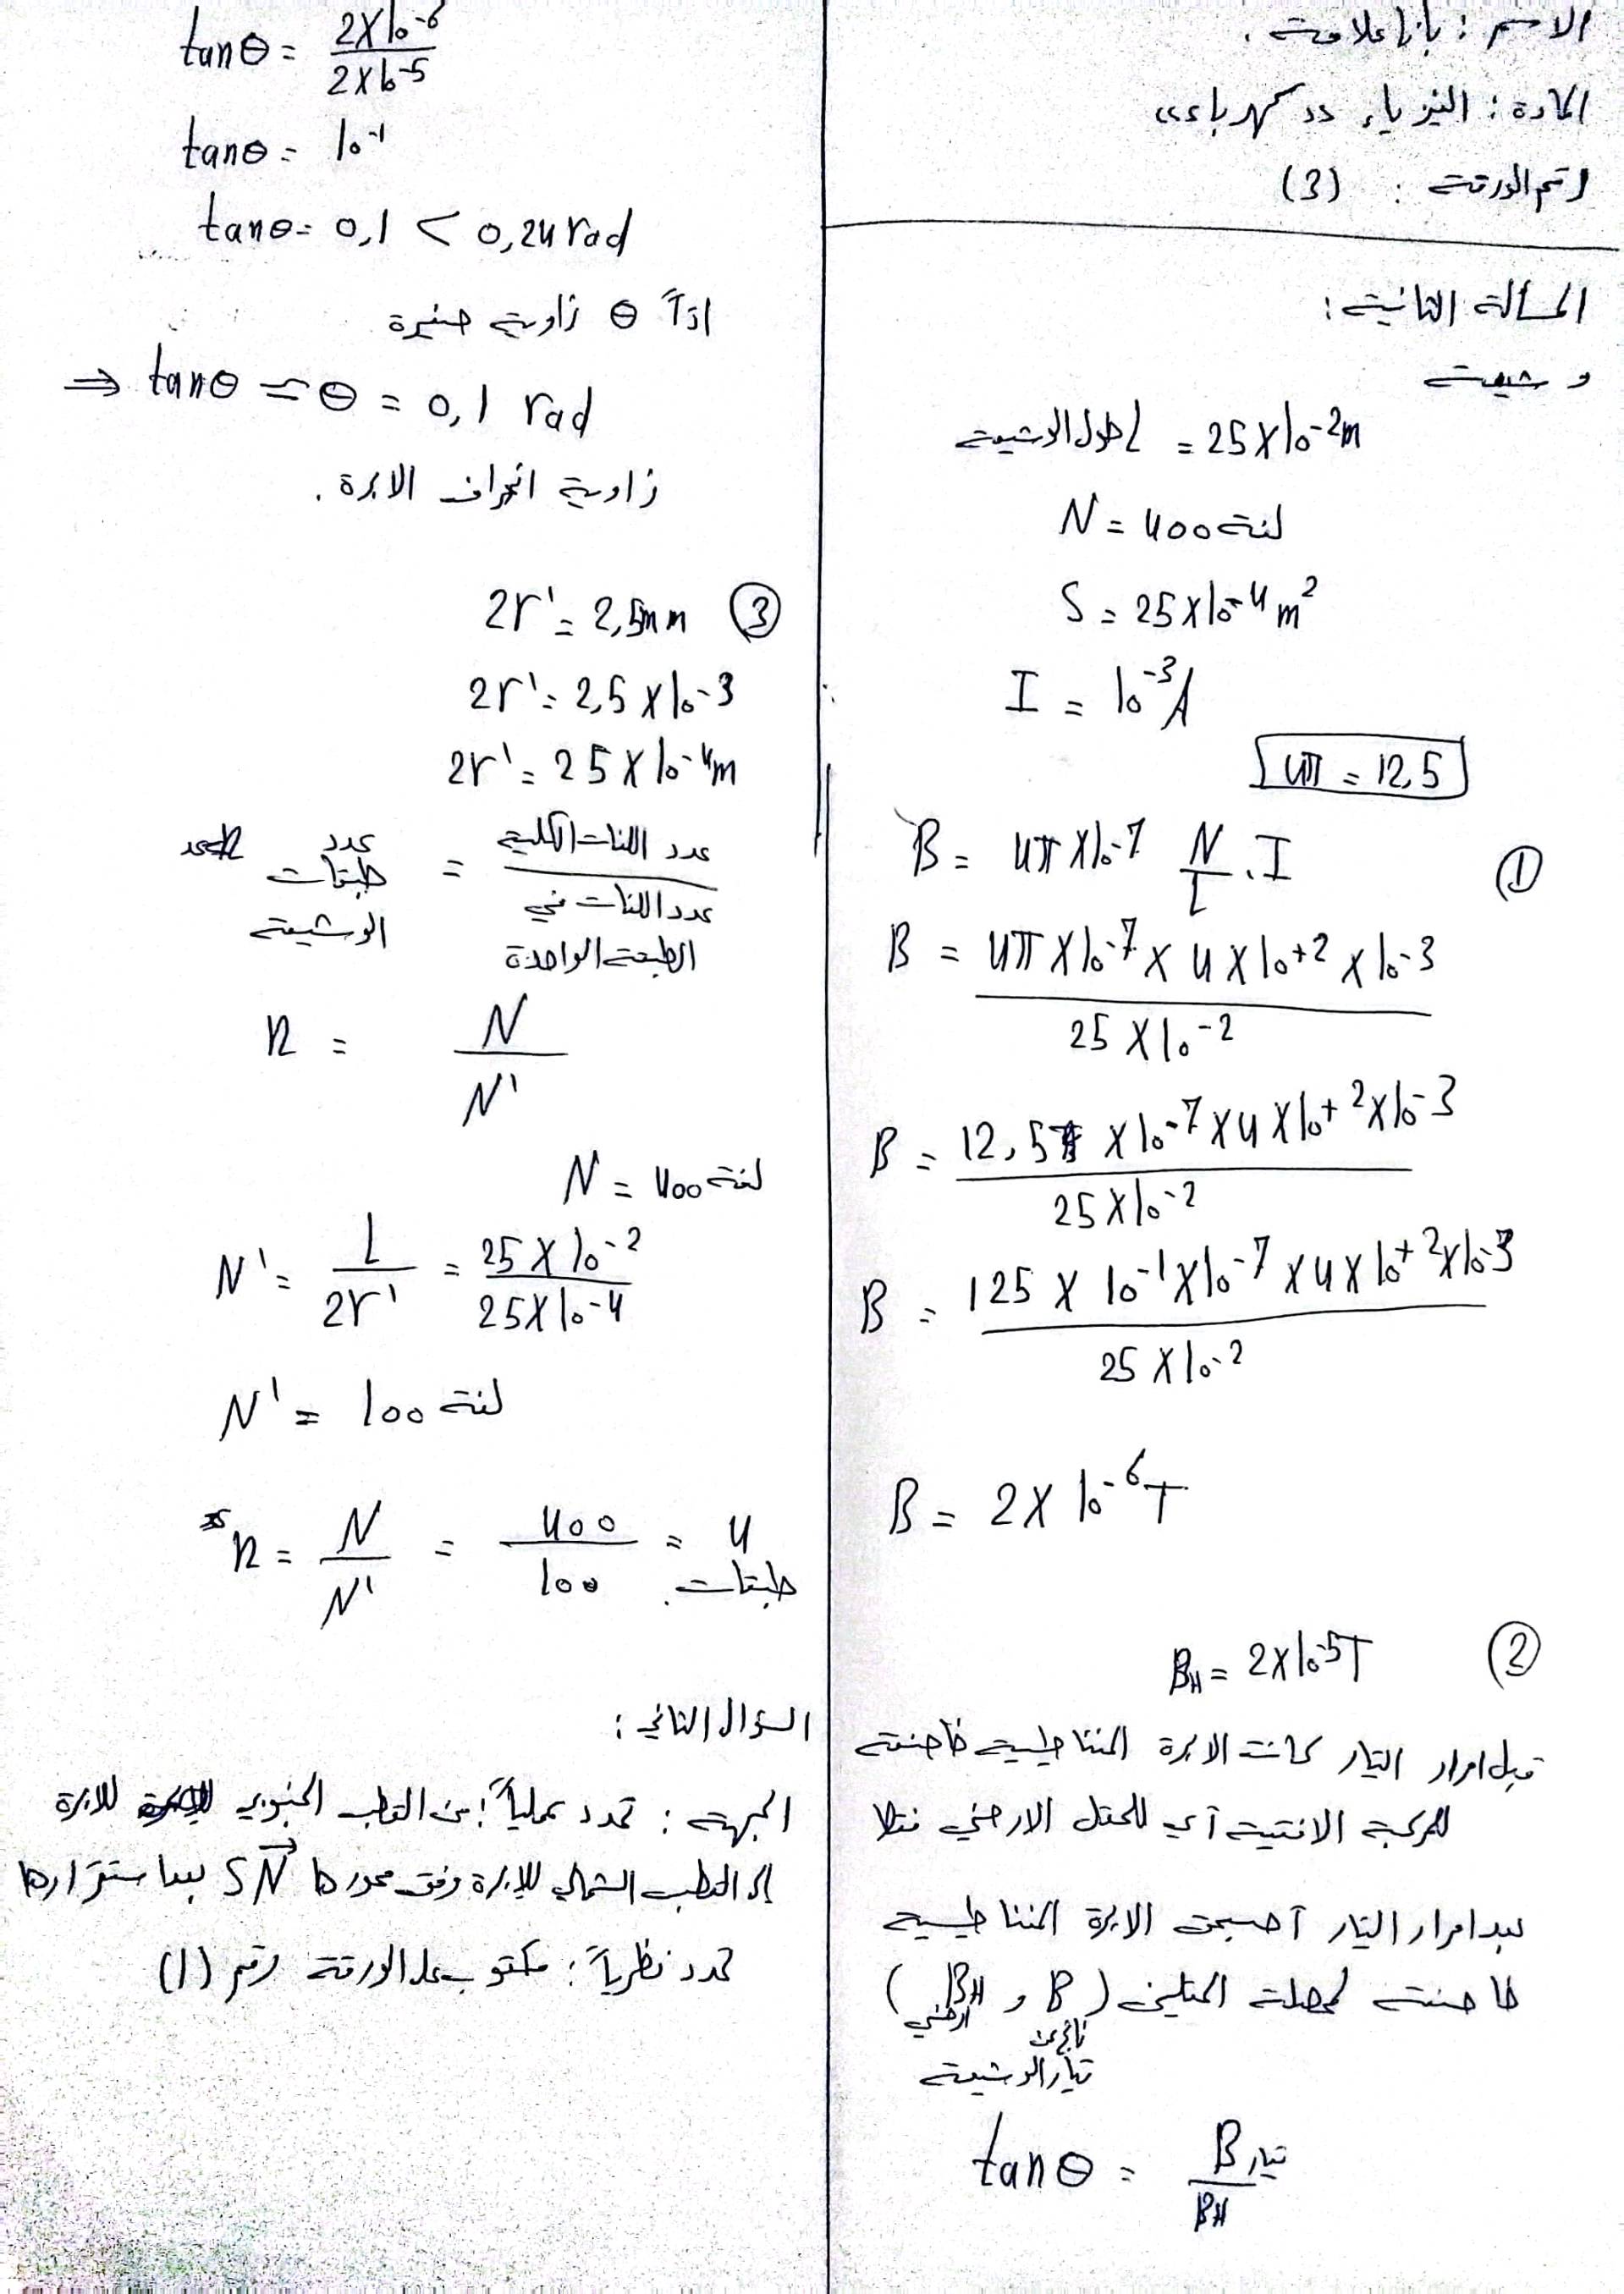 الاسم : يانا علامة .
المادة : الفيزياء ((كهرباء))
رقم الورقة : (3)
المسألة الثانية :
وشيعة
طول الوشيعة L = 25 × 10^-2 m
N = 400 لفة
S = 25 × 10^-4 m^2
I = 10^-3 A
4π = 12,5
① B = 4π × 10^-7 N/L . I
B = 4π × 10^-7 × 4 × 10^+2 × 10^-3 / 25 × 10^-2
B = 12,5 × 10^-7 × 4 × 10^+2 × 10^-3 / 25 × 10^-2
B = 125 × 10^-1 × 10^-7 × 4 × 10^+2 × 10^-3 / 25 × 10^-2
B = 2 × 10^-6 T
② B_H = 2 × 10^-5 T
قبل امرار التيار كانت الابرة المغناطيسية خاضعة
للمركبة الافقية أي للحقل الارضي فقط
بعد امرار التيار أصبحت الابرة المغناطيسية
خاضعة لمحصلة الحقلين (B و B_H)
ناتج عن تيار الوشيعة
ارضي
tanθ = B تيار / B_H
tanθ = 2 × 10^-6 / 2 × 10^-5
tanθ = 10^-1
tanθ = 0,1 < 0,24 rad
اذاً θ زاوية صغيرة
⇒ tanθ ≃ θ = 0,1 rad
زاوية انحراف الابرة .
③ 2r' = 2,5mm
2r' = 2,5 × 10^-3
2r' = 25 × 10^-4 m
عدد طبقات الوشيعة = عدد اللفات الكلية / عدد اللفات في الطبقة الواحدة
n = N / N'
N = 400 لفة
N' = L / 2r' = 25 × 10^-2 / 25 × 10^-4
N' = 100 لفة
n = N / N' = 400 / 100 = 4 طبقات .
السؤال الثاني :
الجهة : تحدد عملياً : من القطب الجنوبي للابرة
إلى القطب الشمالي للإبرة وفق محورها SN بعد استقرارها
تحدد نظرياً : مكتوب على الورقة رقم (1)